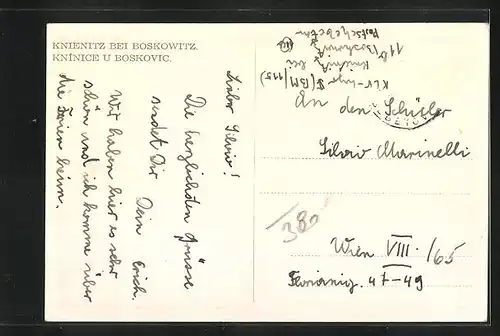 KNIENITZ BEI BOSKOWITZ.
KNÍNICE U BOSKOVIC.
Lieber Silvio!
Die herzlichsten Grüsse
sendet Dir Dein Erich.
Wir haben hier es sehr
schön und ich komme über
die Ferien heim.
KLV-Lager
Knienitz bei
11b Boskowitz
An den Schüler
Silvio Marinelli
380
Wien VIII. /65
Florianig. 47-49